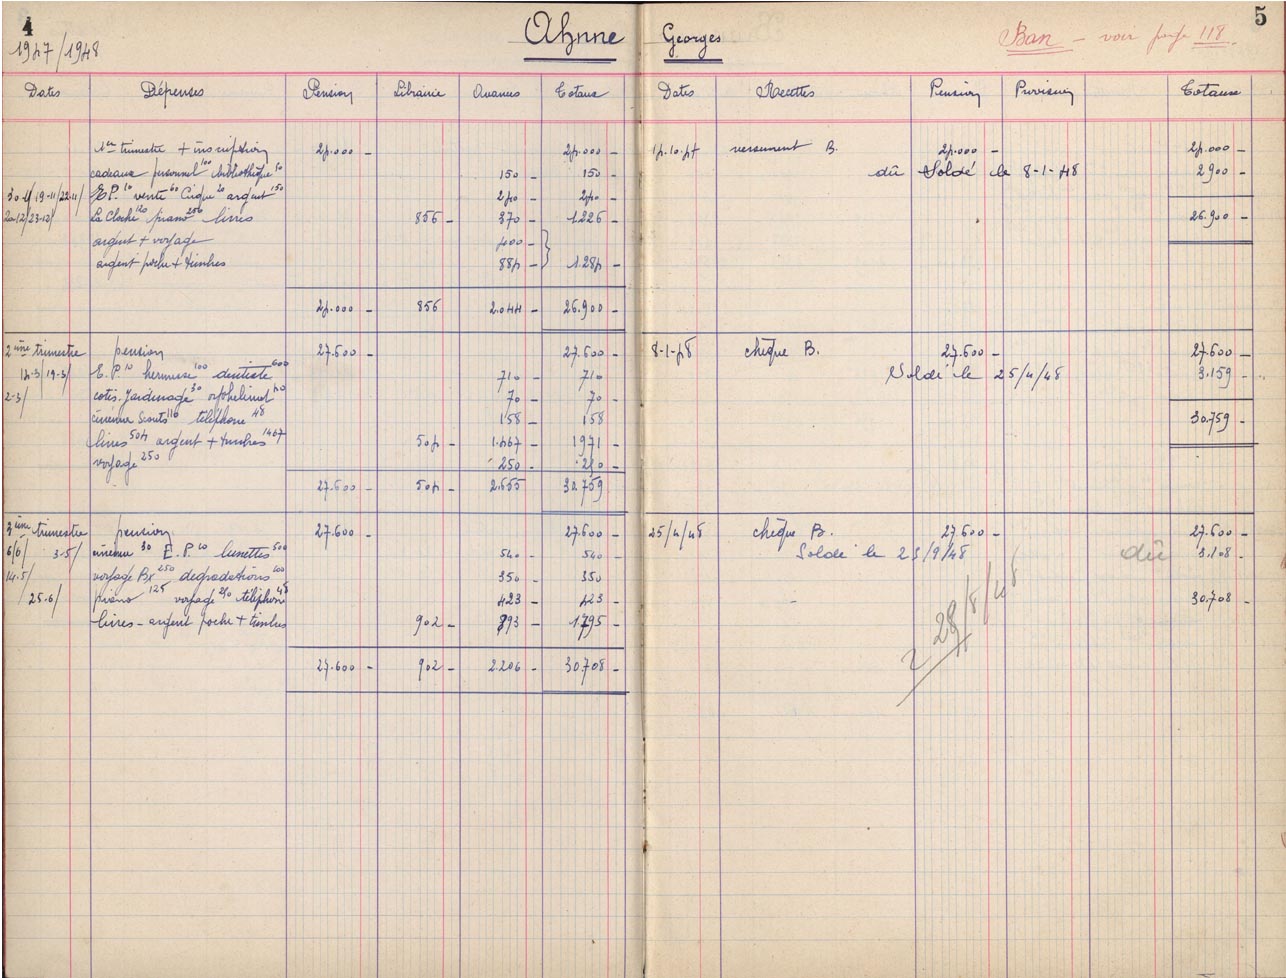 4
1947/1948
Ahnne Georges
5
Ban - voir page 118.
Dates Dépenses Pension Librairie Avances Totaux
1er trimestre + inscription 24.000 - 24.000 -
cadeaux personnel 100 bibliothèque 50 150 - 150 -
19-11/22-11/ E.P. 10 vente 60 Cirque 20 argent 150 240 - 240 -
20-12/23-12/ La Cloche 120 piano 250 livres 856 - 370 - 1.226 -
argent + voyage 400 -
argent poche + timbres 884 - 1.284 -
24.000 - 856 2.044 - 26.900 -
2ème trimestre pension 27.600 - 27.600 -
14-3/19-3/ E.P. 10 hermesse 100 dentiste 600 710 - 710 -
2-3/ cotis. Jardinage 30 orphelinat 40 70 - 70 -
cinéma Scouts 110 téléphone 48 158 158
livres 504 argent + timbres 1467 504 - 1.467 - 1971 -
voyage 250 250 - 250 -
27.600 - 504 - 2.655 30.759
3ème trimestre pension 27.600 - 27.600 -
6/6/ 3-5/ cinéma 30 E.P. 10 lunettes 500 540 - 540 -
14-5/ voyage Bx 250 dégradations 100 350 - 350
25-6/ piano 125 voyage 250 téléphone 48 423 - 423 -
livres - argent poche + timbres 902 - 893 - 1.795 -
27.600 - 902 - 2.206 - 30.708 -
Dates Recettes Pension Provision Totaux
14.10.47 versement B. 24.000 - 24.000 -
dû Soldé le 8-1-48 2900 -
26.900 -
8-1-48 chèque B. 27.600 - 27.600 -
Soldé le 25/4/48 3.159 -
30.759 -
25/4/48 chèque B. 27.600 - 27.600 -
Soldé le 23/9/48 dû 3.108 -
30.708 -
28/8/48